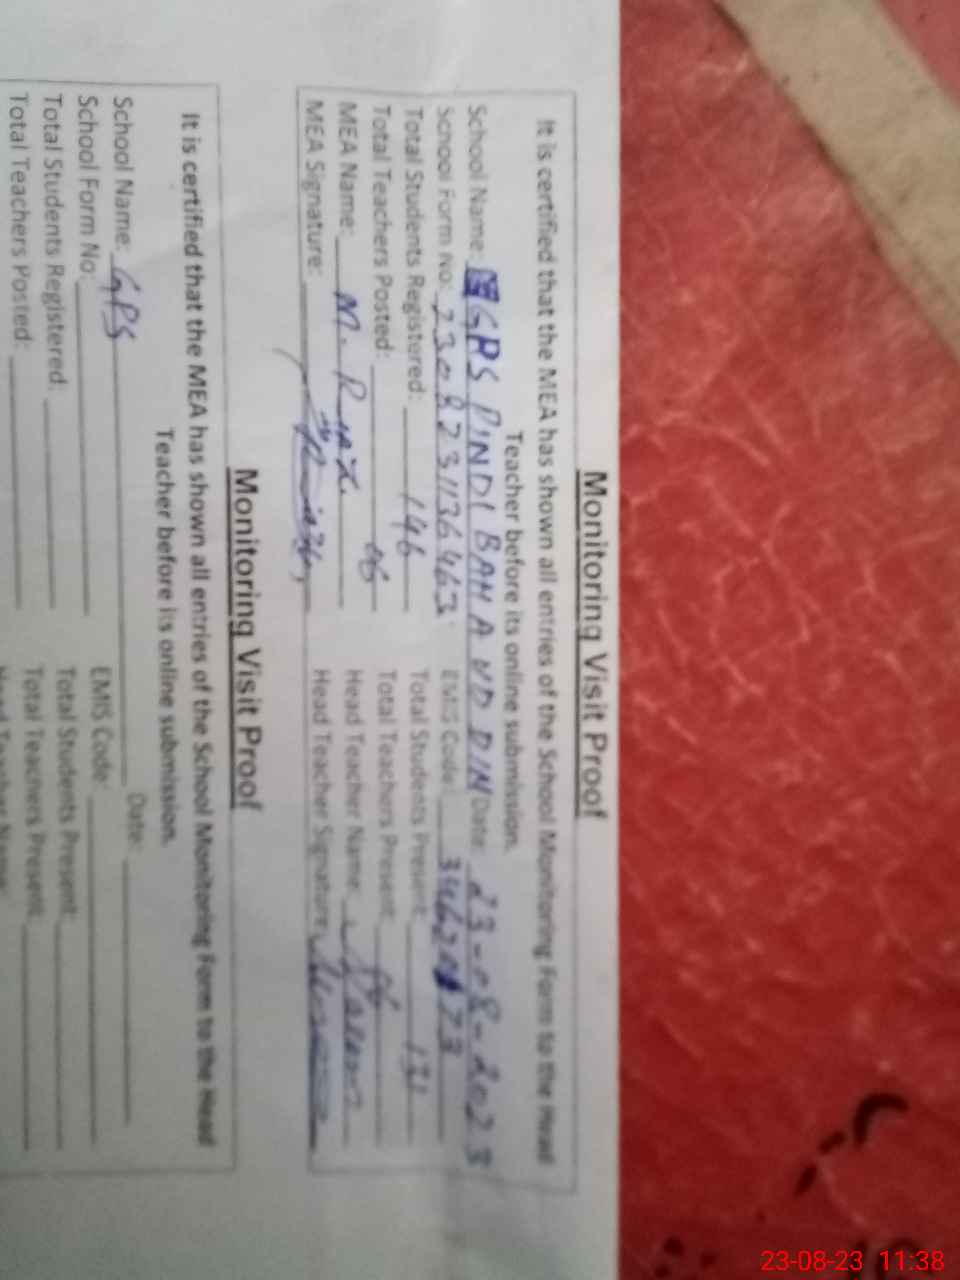 Monitoring Visit Proof
It is certified that the MEA has shown all entries of the School Monitoring Form to the Head
Teacher before its online submission.
School Name: GPS PINDI BAHA UD DIN Date: 23-08-2023
School Form No: 230823113646463 EMIS Code:
Total Students Registered: 146 Total Students Present:
Total Teachers Posted: 06 Total Teachers Present:
MEA Name: M. Riaz Head Teacher Name:
MEA Signature: Head Teacher Signature:
Monitoring Visit Proof
It is certified that the MEA has shown all entries of the School Monitoring Form to the Head
Teacher before its online submission.
School Name: GPS Date:
School Form No: EMIS Code:
Total Students Registered: Total Students Present:
Total Teachers Posted: Total Teachers Present:
23-08-23 11:38